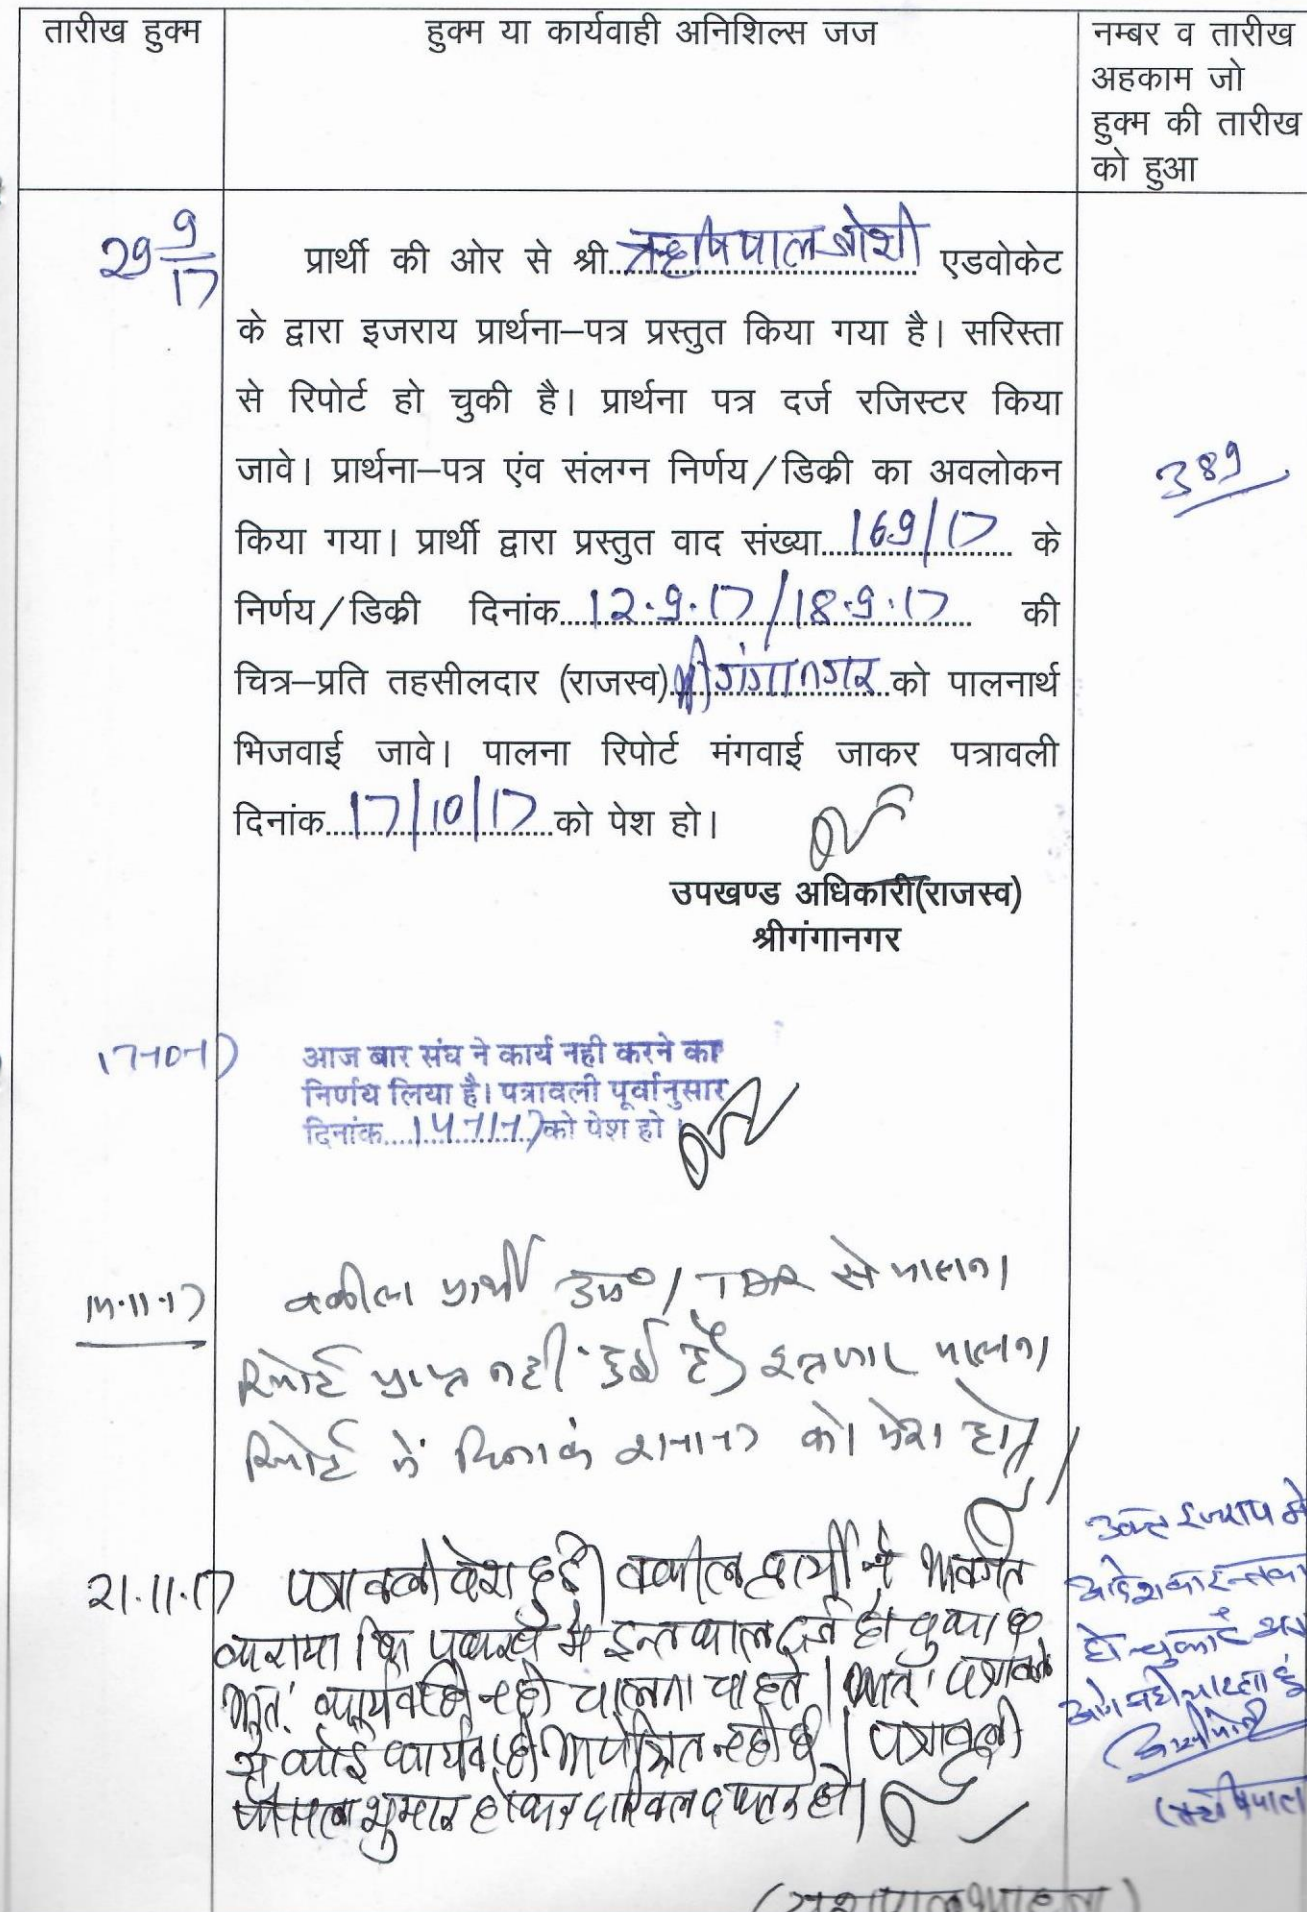 तारीख हुक्म
हुक्म या कार्यवाही अनिशिल्स जज
नम्बर व तारीख
अहकाम जो
हुक्म की तारीख
को हुआ
29 9/17
प्रार्थी की ओर से श्री ऋषिपाल जोशी एडवोकेट
के द्वारा इजराय प्रार्थना–पत्र प्रस्तुत किया गया है। सरिस्ता
से रिपोर्ट हो चुकी है। प्रार्थना पत्र दर्ज रजिस्टर किया
जावे। प्रार्थना–पत्र एंव संलग्न निर्णय/डिक्री का अवलोकन
389
किया गया। प्रार्थी द्वारा प्रस्तुत वाद संख्या 169/17 के
निर्णय/डिक्री दिनांक 12.9.17/18.9.17 की
चित्र–प्रति तहसीलदार (राजस्व) श्रीगंगानगर को पालनार्थ
भिजवाई जावे। पालना रिपोर्ट मंगवाई जाकर पत्रावली
दिनांक 17/10/17 को पेश हो।
उपखण्ड अधिकारी(राजस्व)
श्रीगंगानगर
17-10-17
आज बार संघ ने कार्य नही करने का
निर्णय लिया है। पत्रावली पूर्वानुसार
दिनांक को पेश हो।
14.11.17
वकील प्रार्थी उप०/ TDR से पालना
रिपोर्ट प्राप्त नहीं हुई है। इन्तजार पालना
रिपोर्ट में दिनांक को पेश हो।
21.11.17
पत्रावली पेश हुई। वकील प्रार्थी ने अवगत
कराया कि प्रकरण में इन्तकाल दर्ज हो चुका है
अतः कार्यवाही नही चालना चाहते। अतः पत्रावली
में कोई कार्यवाही अपेक्षित नही है। पत्रावली
फैसल शुमार होकर दाखिल दफ्तर हो।
उक्त इजराय मे
आदेश का इन्तका
हो चुका है अतः
आगे नही चाहता हूं
(ऋषिपाल